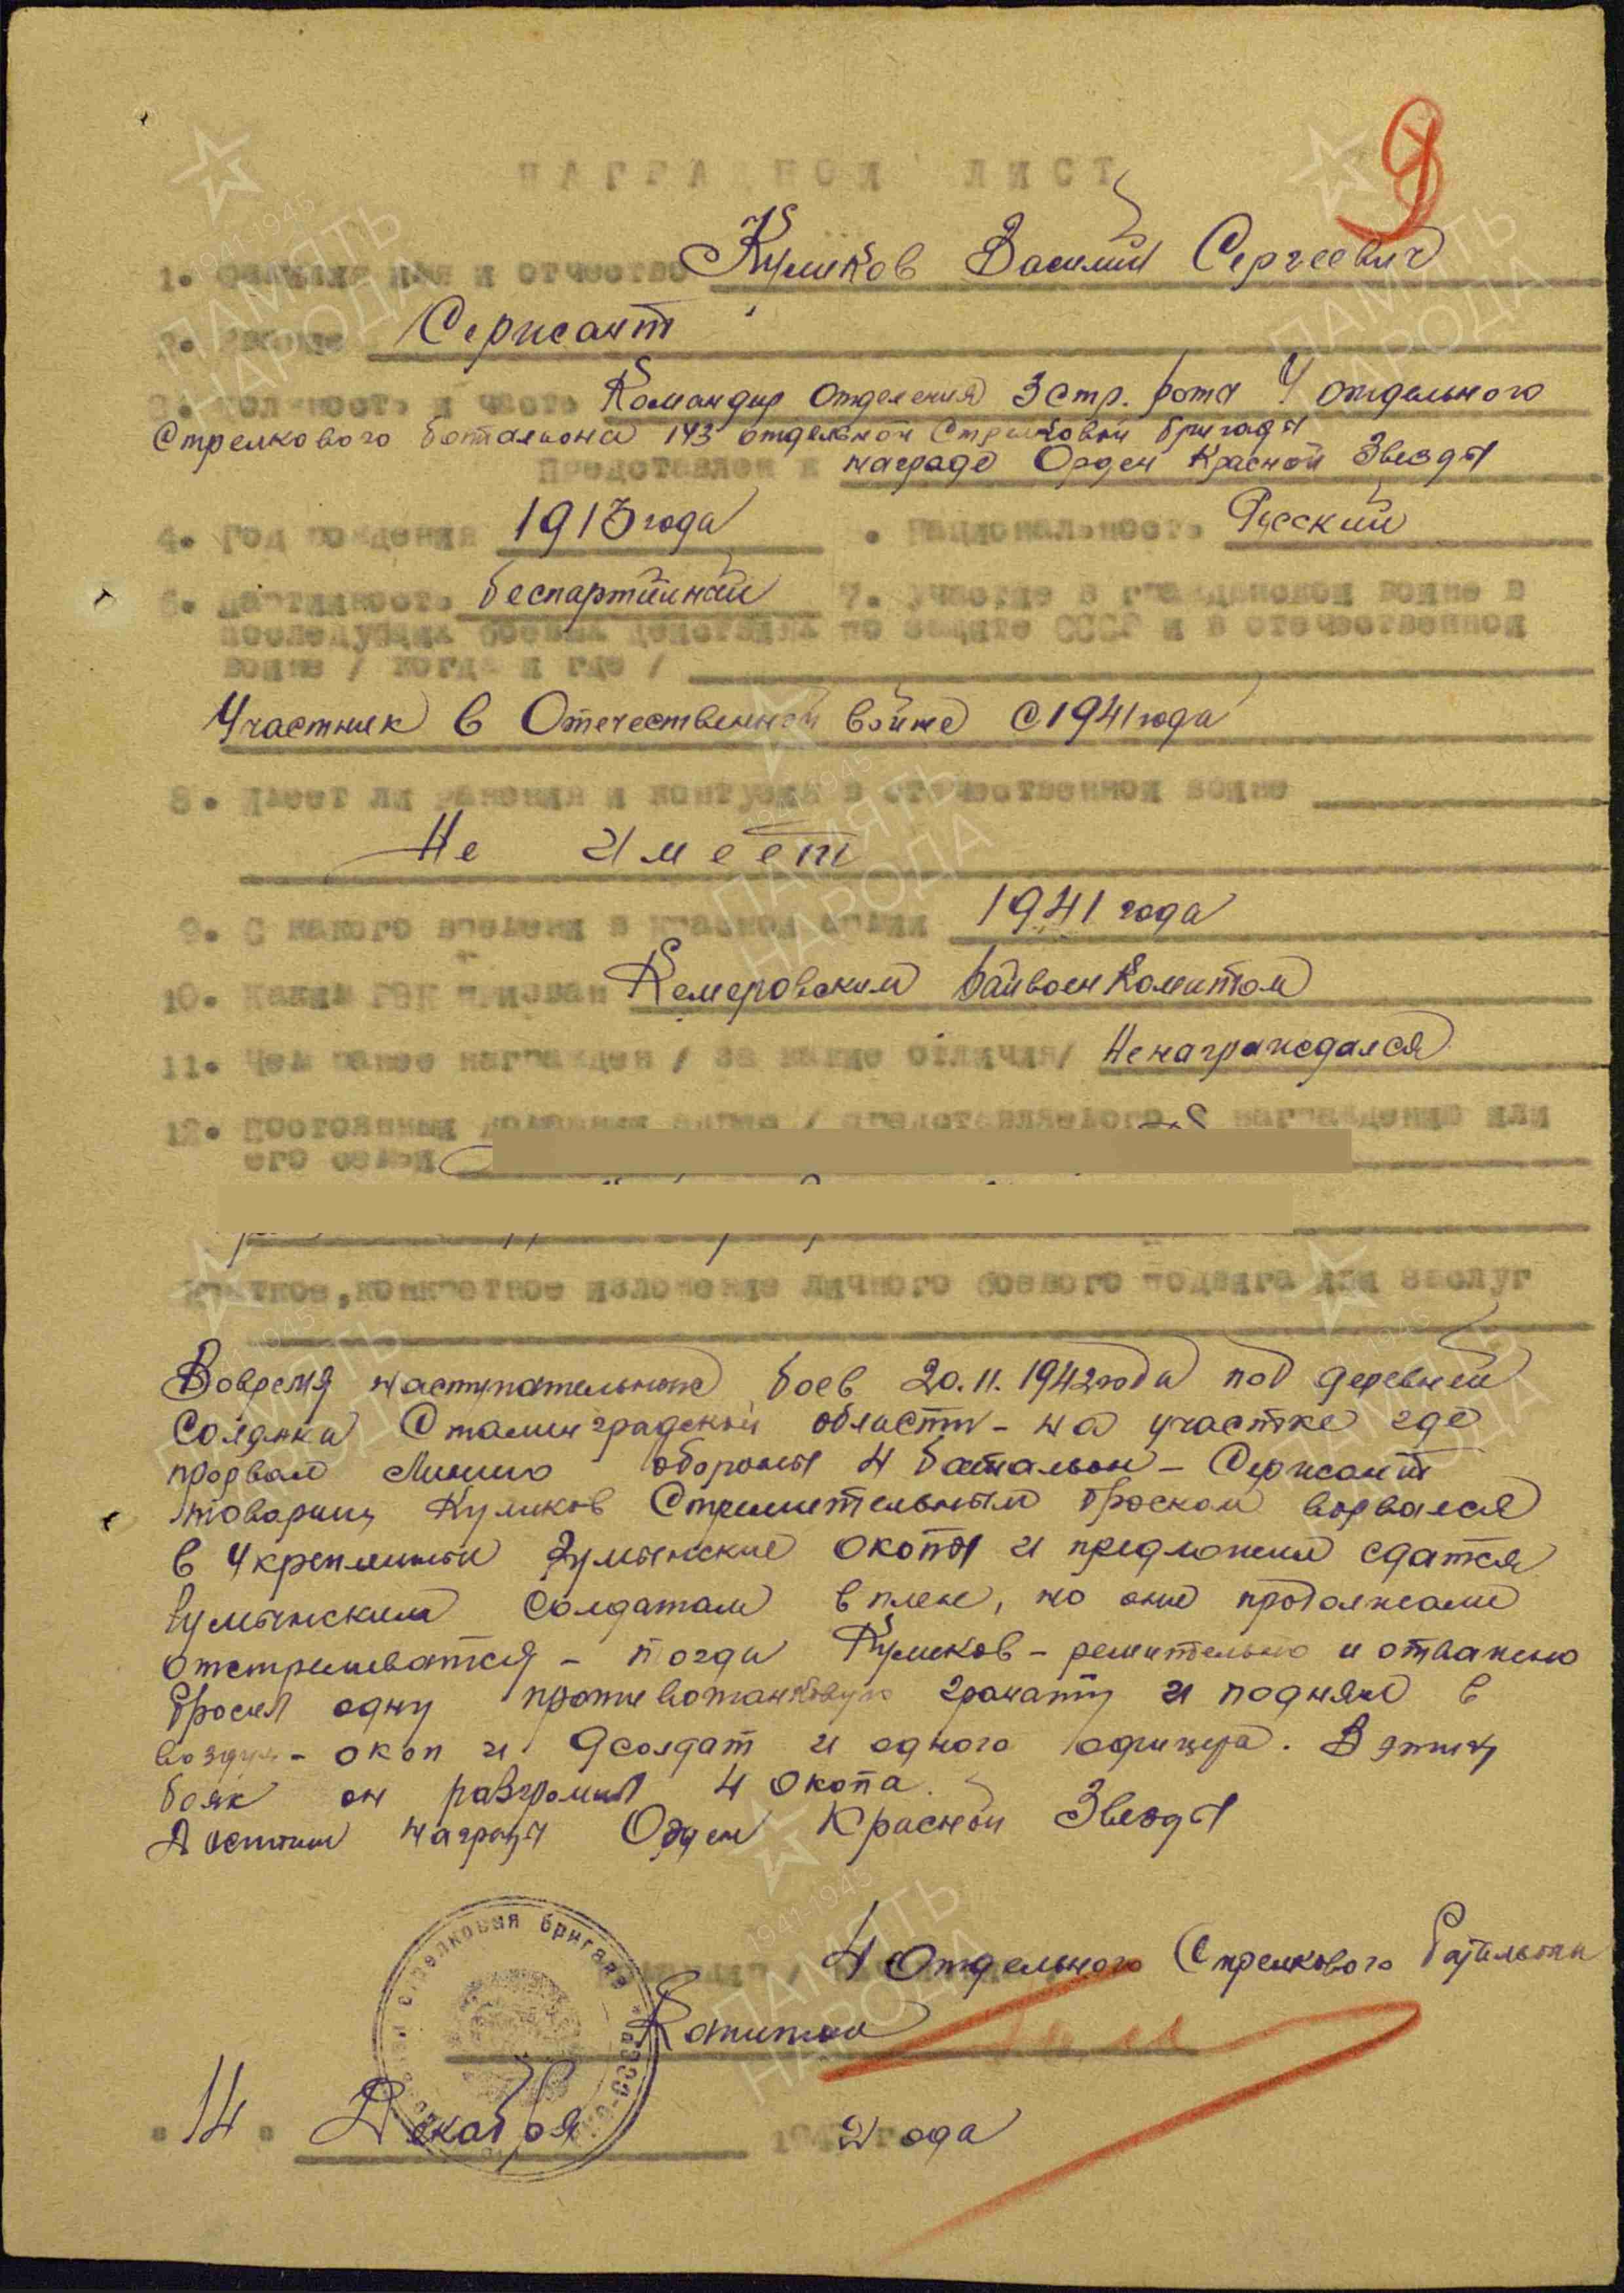 9
НАГРАДНОЙ ЛИСТ
1. Фамилия имя и отчество Куликов Василий Сергеевич
2. Звание Сержант
3. Должность и часть Командир отделения 3 стр. роты 4 отдельного
Стрелкового батальона 143 отдельной Стрелковой бригады
Представлен к награде Орден Красной Звезды
4. Год рождения 1913 года . Национальность Русский
6. Партийность беспартийный 7. Участие в гражданской войне в
последующих боевых действиях по защите СССР и в отечественной
войне / когда и где /
Участник в Отечественной войне с 1941 года
8. Имеет ли ранения и контузия в отечественной войне
Не имеет
9. С какого времени в красной армии 1941 года
10. Каким РВК призван Кемеровским РайвоенКоматом
11. Чем ранее награжден / за какие отличия/ Ненаграждался
12. Постоянный домашний адрес / представляемого к награждению или
его семьи
Краткое, конкретное изложение личного боевого подвига или заслуг
Вовремя наступательных боев 20.11.1942года под деревней
Солянка Сталинградской области - на участке где
прорвал Линию обороны 4 батальон - Сержант
товарищ Куликов Стремительным броском ворвался
в Укрепленные Румынские окопы и предложил сдатся
Румынским Солдатам в плен, но они продолжали
отстреливатся - тогда Куликов - решительно и отважно
бросил одну противотанковую гранату и поднял в
воздух - окоп и 9 солдат и одного офицера. В этих
боях он разгромил 4 окопа.
Достоин награды Орден Красной Звезды
4 Отдельного Стрелкового батальона
Капитан
стрелковая бригада
"14" Декабря 1942 года
ПАМЯТЬ НАРОДА
1941-1945